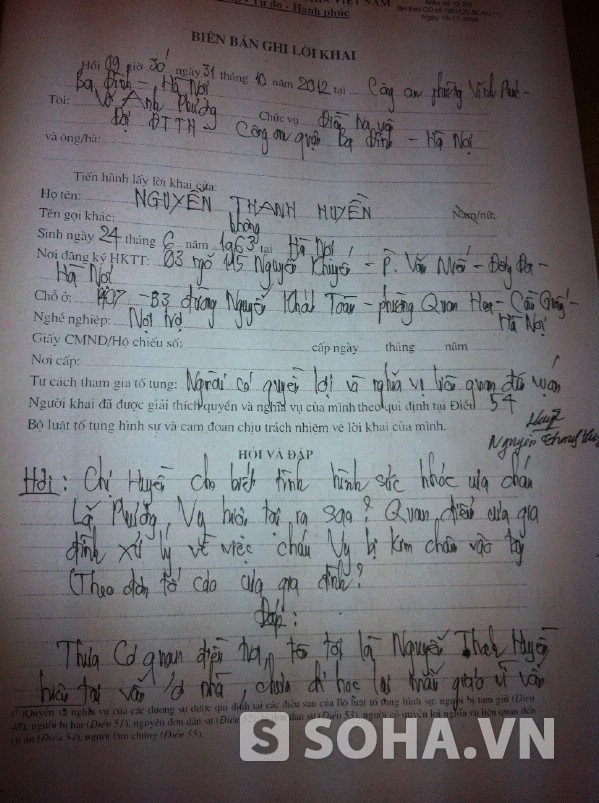 VIỆT NAM
- Tự do - Hạnh phúc
Ngày 18-11-2004
BIÊN BẢN GHI LỜI KHAI
Hồi 09 giờ 30 ngày 31 tháng 10 năm 2012 tại Công an phường Vĩnh Phúc -
Ba Đình - Hà Nội
Tôi: Võ Anh Phương Chức vụ Điều tra viên
Đội ĐTTH - Công an quận Ba Đình - Hà Nội
và ông/bà:
Tiến hành lấy lời khai của:
Họ tên: NGUYỄN THANH HUYỀN Nam/nữ:
Tên gọi khác: không
Sinh ngày 24 tháng 6 năm 1963 tại Hà Nội
Nơi đăng ký HKTT: 03 ngõ Nguyễn Khuyến - P. Văn Miếu - Đống Đa -
Hà Nội
Chỗ ở: - B3 đường Nguyễn Khánh Toàn - phường Quan Hoa - Cầu Giấy -
Hà Nội
Nghề nghiệp: Nội trợ
Giấy CMND/Hộ chiếu số: cấp ngày tháng năm
Nơi cấp:
Tư cách tham gia tố tụng: Người có quyền lợi và nghĩa vụ liên quan đến vụ án
Người khai đã được giải thích quyền và nghĩa vụ của mình theo qui định tại Điều 54
Bộ luật tố tụng hình sự và cam đoan chịu trách nhiệm về lời khai của mình.
Nguyễn Thanh Huyền
HỎI VÀ ĐÁP
Hỏi: Chị Huyền cho biết tình hình sức khỏe của cháu
Lã Phương Vy hiện tại ra sao? Quan điểm của gia
đình xử lý về việc cháu Vy bị kim châm vào tay
(Theo đơn tố cáo của gia đình?
Đáp:
Thưa Cơ quan điều tra, tên tôi là Nguyễn Thanh Huyền
hiện tại vẫn ở nhà, chưa đi học lại mẫu giáo vì vẫn
(*)Quyền và nghĩa vụ của các đương sự được qui định tại các điều sau của Bộ luật tố tụng hình sự: người bị tạm giữ (Điều
48), người bị hại (Điều 51), nguyên đơn dân sự (Điều 52), bị đơn dân sự (Điều 53), người có quyền lợi nghĩa vụ liên quan đến
vụ án (Điều 54), người làm chứng (Điều 55).
S SOHA.VN